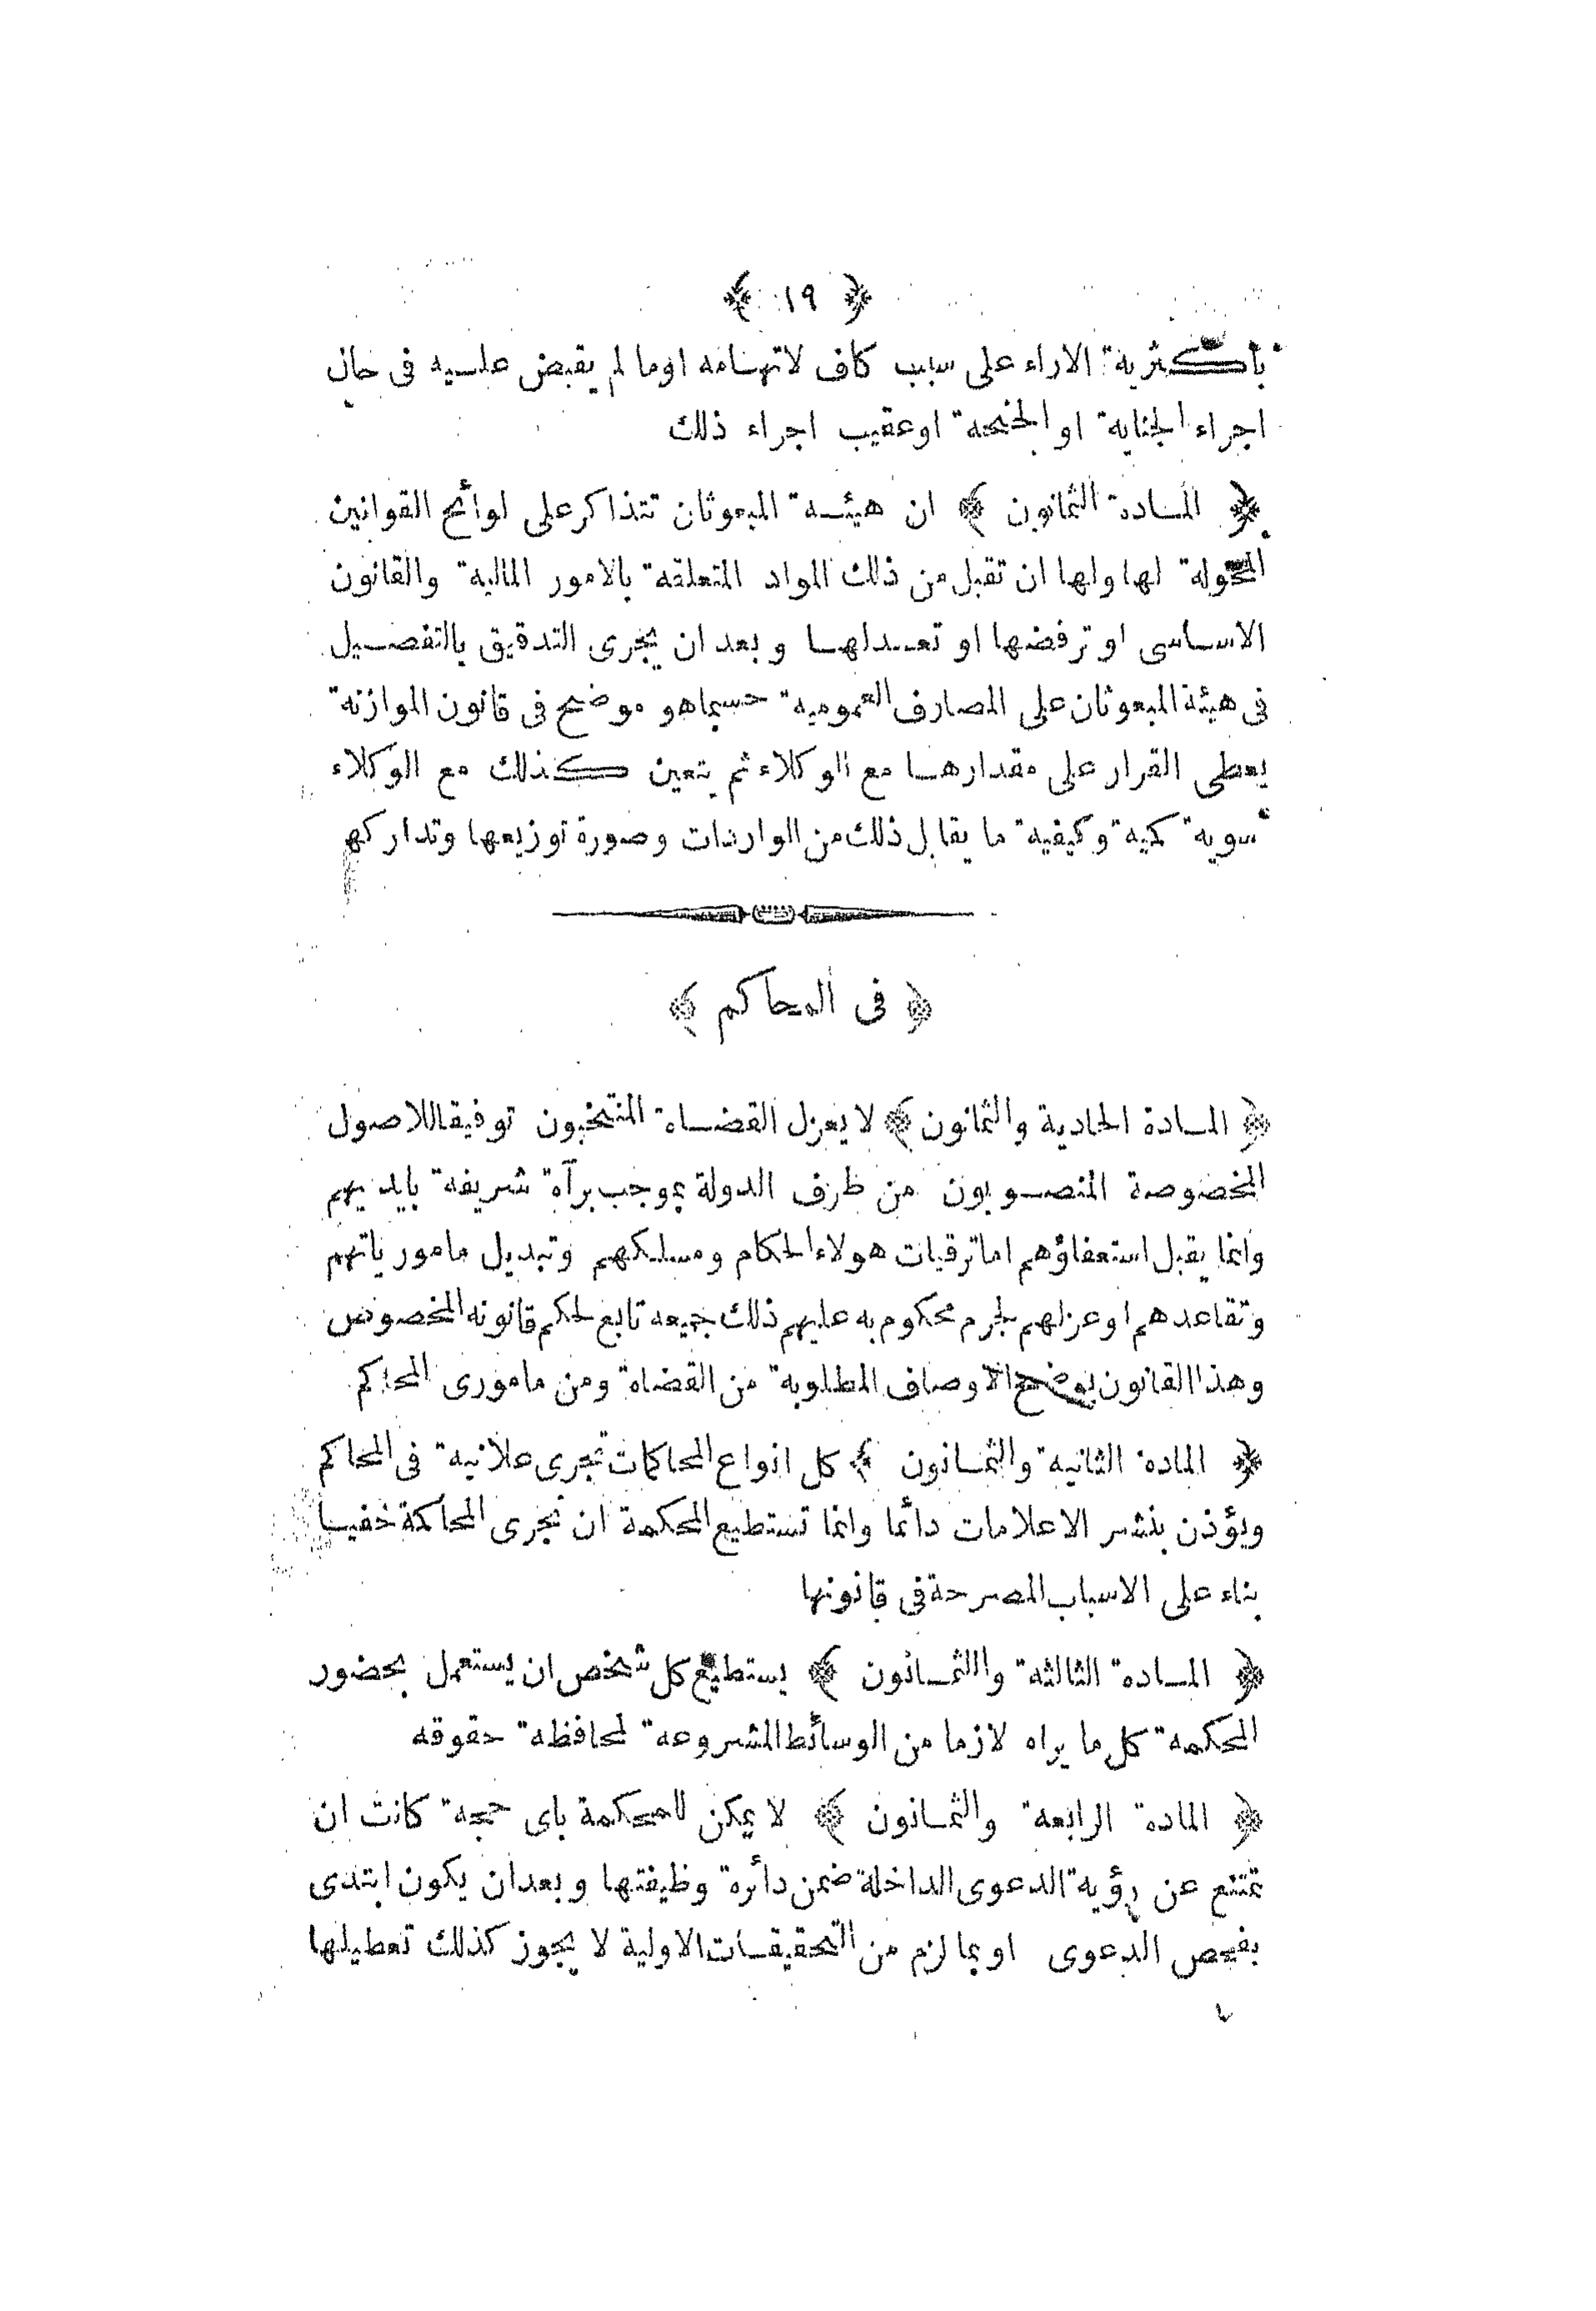 ﴿ ١٩ ﴾
بأكثرية الاراء على سبب كاف لاتهامه اوما لم يقبض عليه فى حال
اجراء الجناية او الجنحة او عقيب اجراء ذلك
﴿ المادة الثمانون ﴾ ان هيئة المبعوثان تتذاكر على لوائح القوانين
المحوله لها ولها ان تقبل من ذلك المواد المتعلقة بالامور المالية والقانون
الاساسى او ترفضها او تعدلها وبعد ان يجرى التدقيق بالتفصيل
فى هيئة المبعوثان على المصارف العمومية حسبما هو موضح فى قانون الموازنة
يعطى القرار على مقدارها مع الوكلاء ثم يتعين كذلك مع الوكلاء
سوية كمية وكيفية ما يقابل ذلك من الواردات وصورة توزيعها وتداركها
﴿ فى المحاكم ﴾
﴿ المادة الحادية والثمانون ﴾ لا يعزل القضاة المنتخبون توفيقا للاصول
المخصوصة المنصوبون من طرف الدولة بموجب برآة شريفة بايديهم
وانما يقبل استعفاؤهم اما ترقيات هولاء الحكام ومسلكهم وتبديل مامورياتهم
وتقاعدهم او عزلهم لجرم محكوم به عليهم ذلك جميعه تابع لحكم قانونه المخصوص
وهذا القانون يوضح الاوصاف المطلوبة من القضاة ومن مامورى المحاكم
﴿ المادة الثانية والثمانون ﴾ كل انواع المحاكمات تجرى علانية فى المحاكم
ويؤذن بنشر الاعلامات دائما وانما تستطيع المحكمة ان تجرى المحاكمة خفيا
بناء على الاسباب المصرحة فى قانونها
﴿ المادة الثالثة واالثمانون ﴾ يستطيع كل شخص ان يستعمل بحضور
المحكمة كل ما يراه لازما من الوسائط المشروعة لمحافظة حقوقه
﴿ المادة الرابعة والثمانون ﴾ لا يمكن للمحكمة باى حجة كانت ان
تمتنع عن رؤية الدعوى الداخلة ضمن دائرة وظيفتها وبعد ان يكون ابتدى
بفحص الدعوى او بما لزم من التحقيقات الاولية لا يجوز كذلك تعطيلها